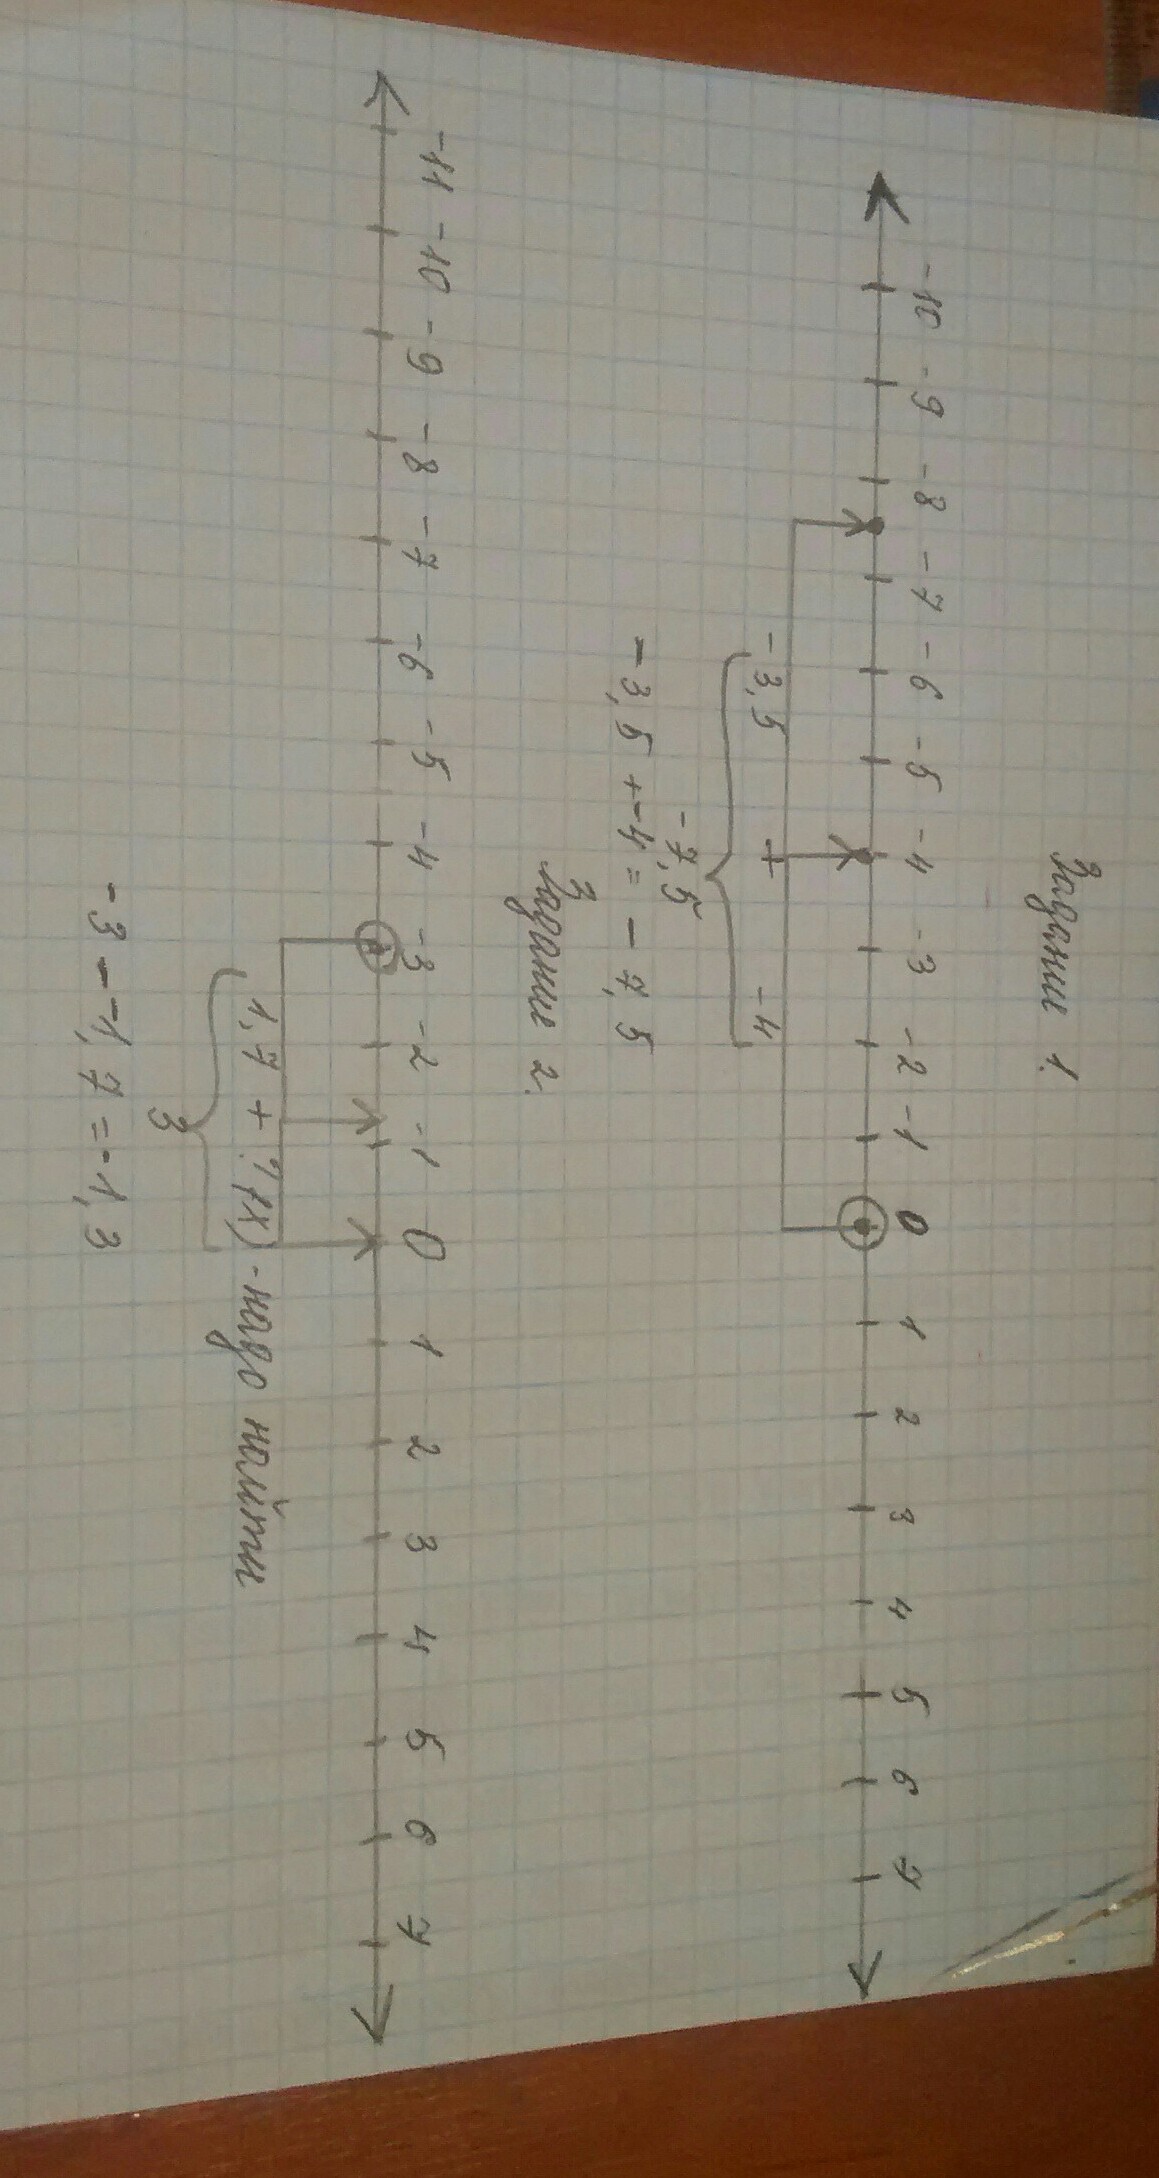 Задание 1.
-10 -9 -8 -7 -6 -5 -4 -3 -2 -1 0 1 2 3 4 5 6 7
-3,5 + -4
-7,5
-3,5 + -4 = -7,5
Задание 2.
-11 -10 -9 -8 -7 -6 -5 -4 -3 -2 -1 0 1 2 3 4 5 6 7
1,7 + ?(x) - надо найти
3
-3 - -1,7 = -1,3